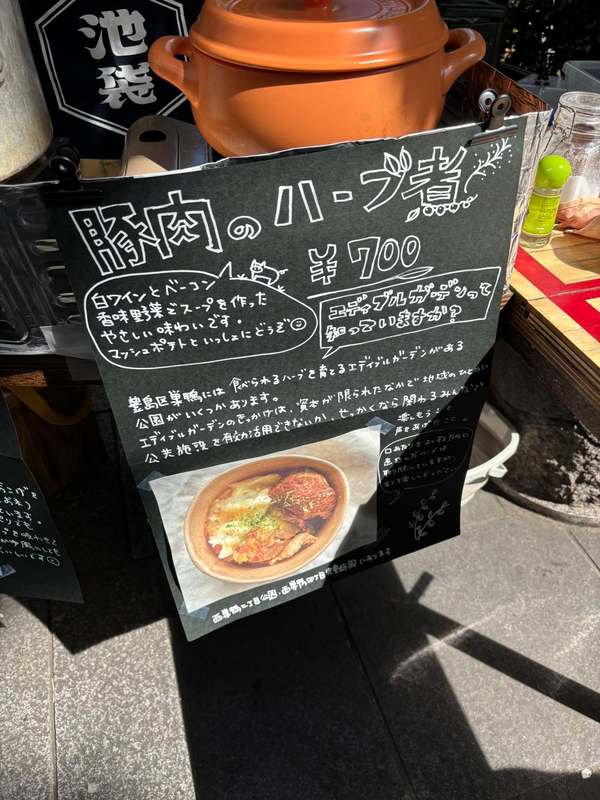 池袋
豚肉のハーブ煮
¥700
白ワインとベーコン
香味野菜でスープを作った
やさしい味わいです。
マッシュポテトといっしょにどうぞ
エディブルガーデンって
知っていますか?
豊島区巣鴨には食べられるハーブを育てるエディブルガーデンがある
公園がいくつかあります。
エディブルガーデンのきっかけは、資本が限られたなかで地域の
公共施設を有効活用できないか、せっかくなら関わるみんなが
楽しもう
西巣鴨二丁目公園、西巣鴨四丁目
にあります